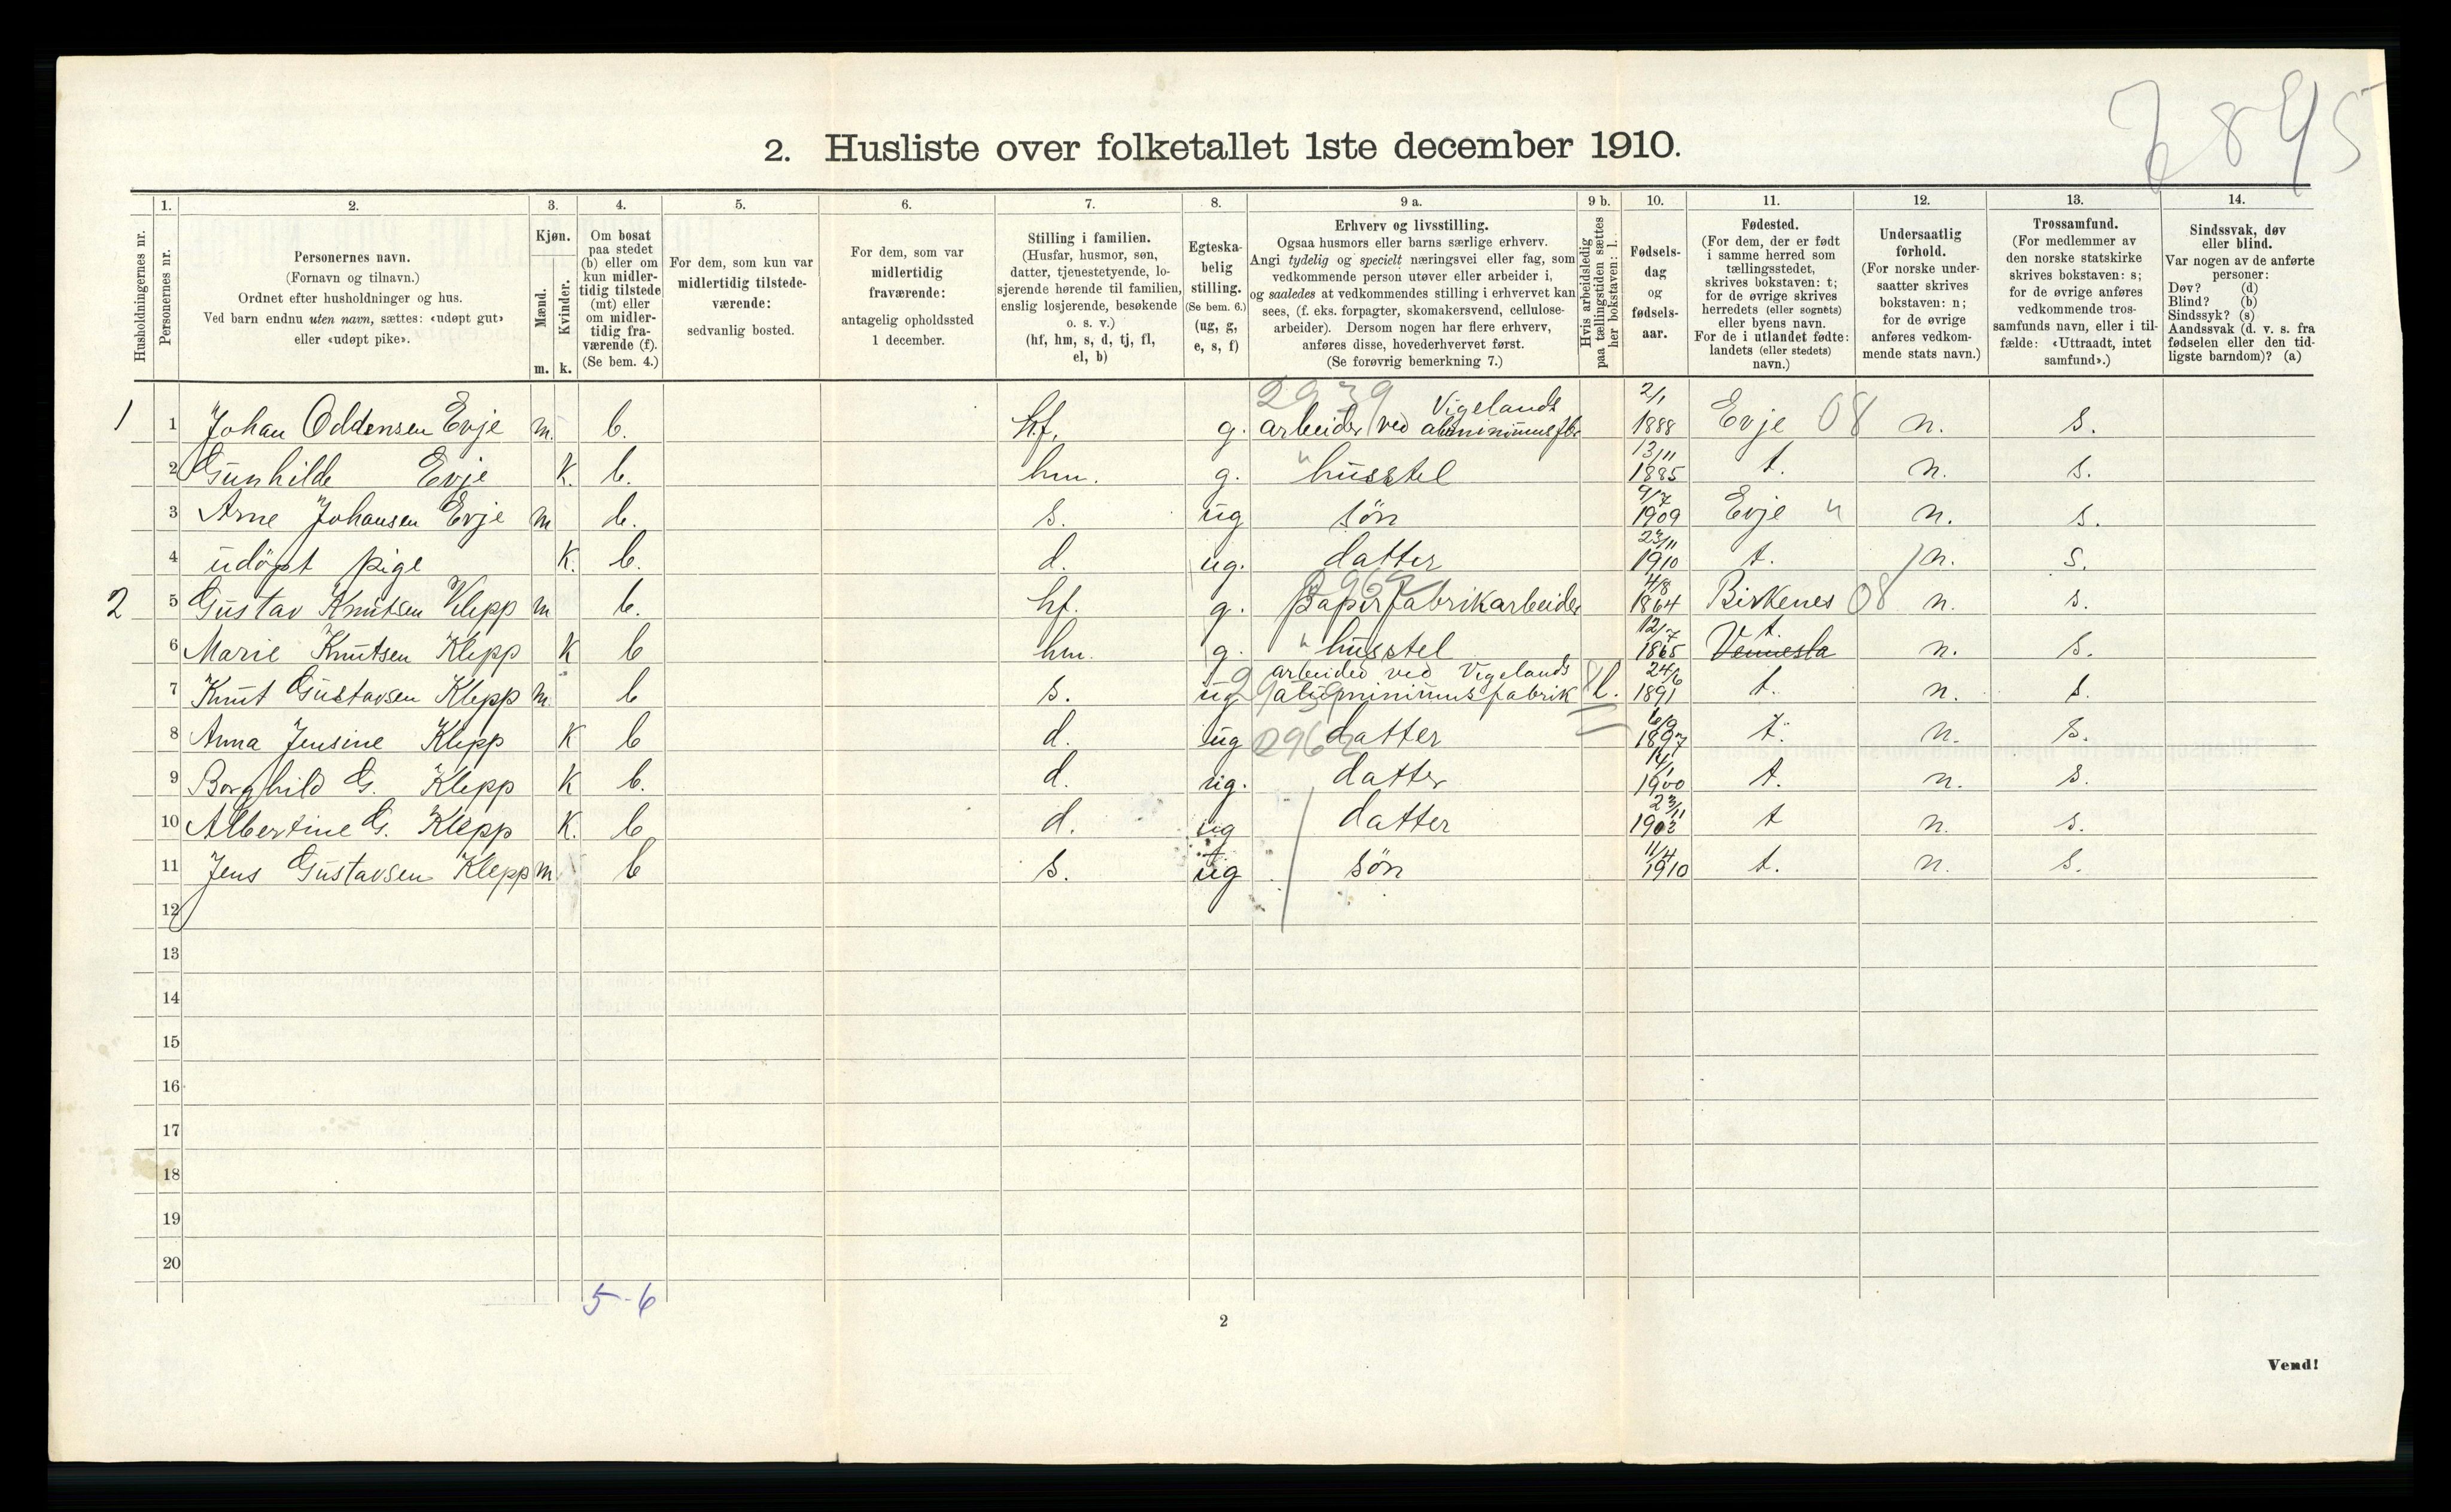 6895
2. Husliste over folketallet 1ste december 1910.
Husholdningernes nr.
1. Personernes nr.
2. Personernes navn. (Fornavn og tilnavn.) Ordnet efter husholdninger og hus. Ved barn endnu uten navn, sættes: «udøpt gut» eller «udøpt pike».
3. Kjøn. Mænd. Kvinder. m. k.
4. Om bosat paa stedet (b) eller om kun midler-tidig tilstede (mt) eller om midler-tidig fra-værende (f). (Se bem. 4.)
5. For dem, som kun var midlertidig tilstede-værende: sedvanlig bosted.
6. For dem, som var midlertidig fraværende: antagelig opholdssted 1 december.
7. Stilling i familien. (Husfar, husmor, søn, datter, tjenestetyende, lo-sjerende hørende til familien, enslig losjerende, besøkende o. s. v.) (hf, hm, s, d, tj, fl, el, b)
8. Egteska-belig stilling. (Se bem. 6.) (ug, g, e, s, f)
9 a. Erhverv og livsstilling. Ogsaa husmors eller barns særlige erhverv. Angi tydelig og specielt næringsvei eller fag, som vedkommende person utøver eller arbeider i, og saaledes at vedkommendes stilling i erhvervet kan sees, (f. eks. forpagter, skomakersvend, cellulose-arbeider). Dersom nogen har flere erhverv, anføres disse, hovederhvervet først. (Se forøvrig bemerkning 7.)
9 b. Hvis arbeidsledig paa tællingstiden sættes her bokstaven: l.
10. Fødsels-dag og fødsels-aar.
11. Fødested. (For dem, der er født i samme herred som tællingsstedet, skrives bokstaven: t; for de øvrige skrives herredets (eller sognets) eller byens navn. For de i utlandet fødte: landets (eller stedets) navn.)
12. Undersaatlig forhold. (For norske under-saatter skrives bokstaven: n; for de øvrige anføres vedkom-mende stats navn.)
13. Trossamfund. (For medlemmer av den norske statskirke skrives bokstaven: s; for de øvrige anføres vedkommende tros-samfunds navn, eller i til-fælde: «Uttraadt, intet samfund».)
14. Sindssvak, døv eller blind. Var nogen av de anførte personer: Døv? (d) Blind? (b) Sindssyk? (s) Aandssvak (d. v. s. fra fødselen eller den tid-ligste barndom)? (a)
1 1 Johan Oddensen Evje m. b. hf. g. 2939 arbeider ved Vigelands aluminiumsfbr 2/1 1888 Evje 08 n. s.
2 Gunhilde Evje K. b. hm. g. " husstel 13/11 1885 t. n. s.
3 Arne Johansen Evje m b. s. ug søn 9/7 1909 Evje " n. s.
4 udøpt pige K. b. d. ug. datter 23/11 1910 t. n. s.
2 5 Gustav Knutsen Klepp m b. hf. g. Papirfabrikarbeider 4/8 1864 Birkenes 08 n. s.
6 Marie Knutsen Klepp K b hm. g. " husstel 12/7 1865 Vennesla t. n. s.
7 Knut Gustavsen Klepp m. b s. ug arbeider ved Vigelands aluminiumsfabrik l. 24/6 1891 t. n. s.
8 Anna Jensine Klepp K b d. ug datter 6/9 1897 t. n. s.
9 Borghild G. Klepp K b. d. ug. datter 14/1 1900 t. n. s.
10 Albertine G. Klepp K. b d. ug datter 23/11 1902 t n. s.
11 Jens Gustavsen Klepp m b s. ug søn 11/4 1910 t. n. s.
12
13
14
15
16
17
18
19
20
5-6
2
Vend!